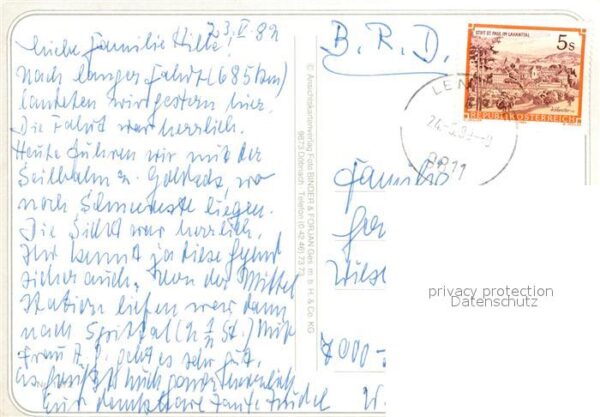 23. V. 89
Liebe Familie
Nach langer Fahrt (685 km)
landeten wir gestern hier.
Die Fahrt war herrlich.
Heute fuhren wir mit der
Seilbahn z. Goldeck, wo
noch Schneereste liegen.
Die Sicht war herrlich.
Ihr kennt ja diese Gegend
sicher auch. Von der Mittel
station liefen wir dann
nach Spittal (2 1/2 St.)
Frau geht es sehr gut,
es grüßt Euch ganz herzlich
Eure dankbare Tante
© Ansichtskartenverlag Foto BINDER & FORJAN Ges. m. b. H. & Co. KG
9873 Döbriach Telefon (0 42 46) 73 73
B. R. D.
STIFT ST. PAUL IM LAVANTTAL
5 S
REPUBLIK ÖSTERREICH
9811
Familie
Wiese
7000
privacy protection
Datenschutz